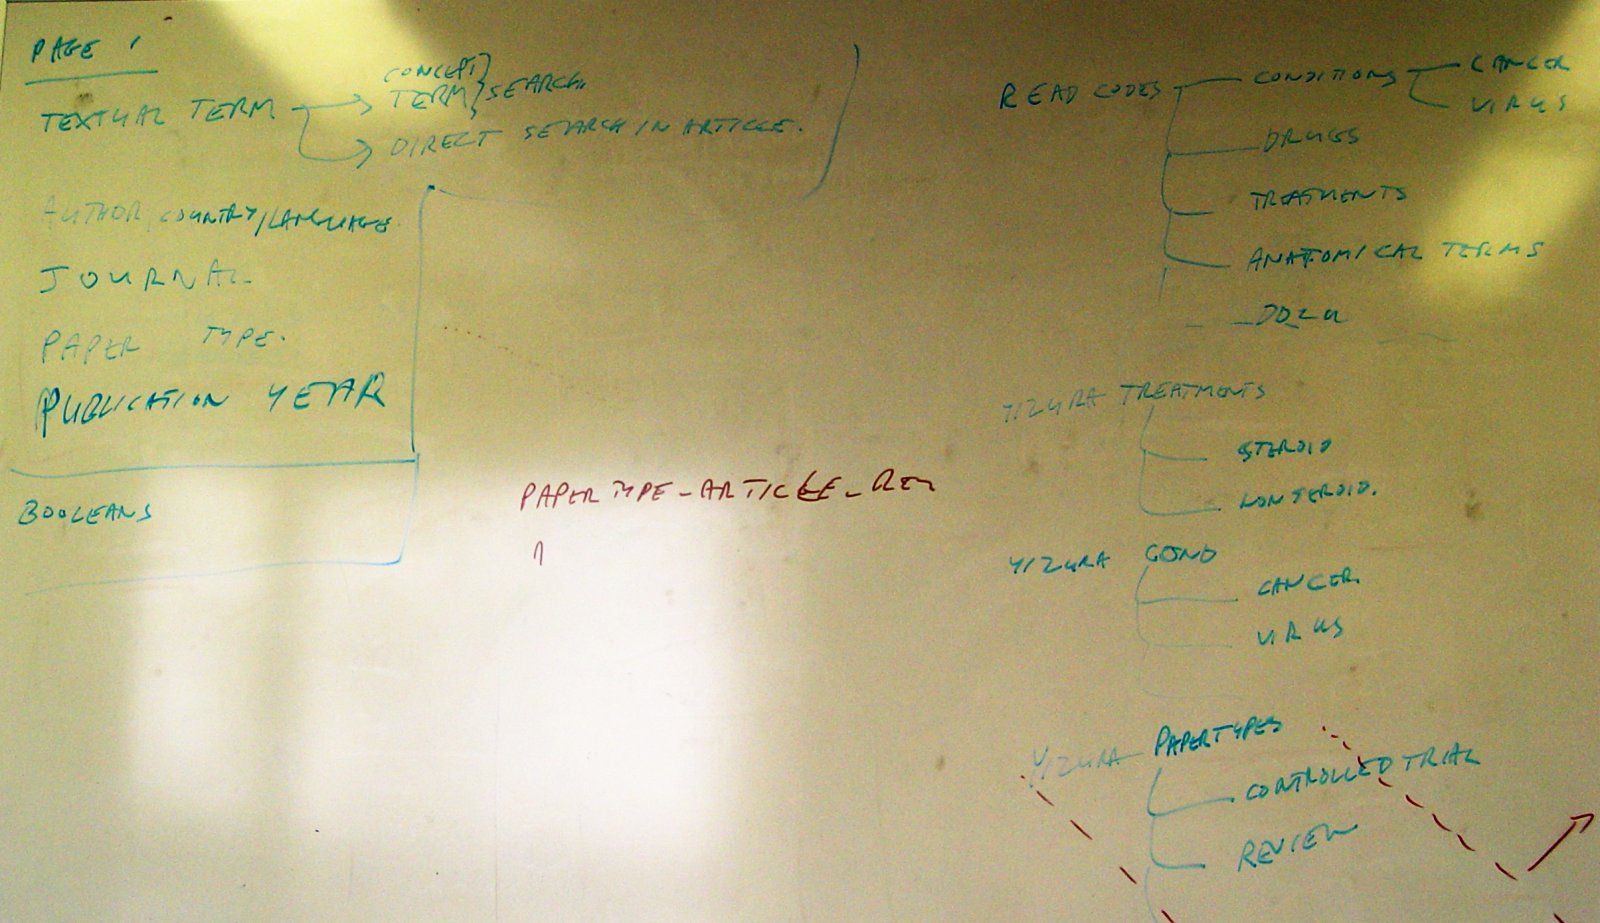 PAGE 1
TEXTUAL TERM
CONCEPT
TERM
SEARCH.
DIRECT SEARCH IN ARTICLE.
AUTHOR/COUNTRY/LANGUAGE.
JOURNAL
PAPER TYPE.
PUBLICATION YEAR
BOOLEANS
PAPER TYPE-ARTICLE-REV
READ CODES
CONDITIONS
CANCER
VIRUS
DRUGS
TREATMENTS
ANATOMICAL TERMS
YIZURA TREATMENTS
STEROID
NONTEROID.
YIZURA COND
CANCER
VIRUS
YIZURA PAPERTYPES
CONTROLLED TRIAL
REVIEW